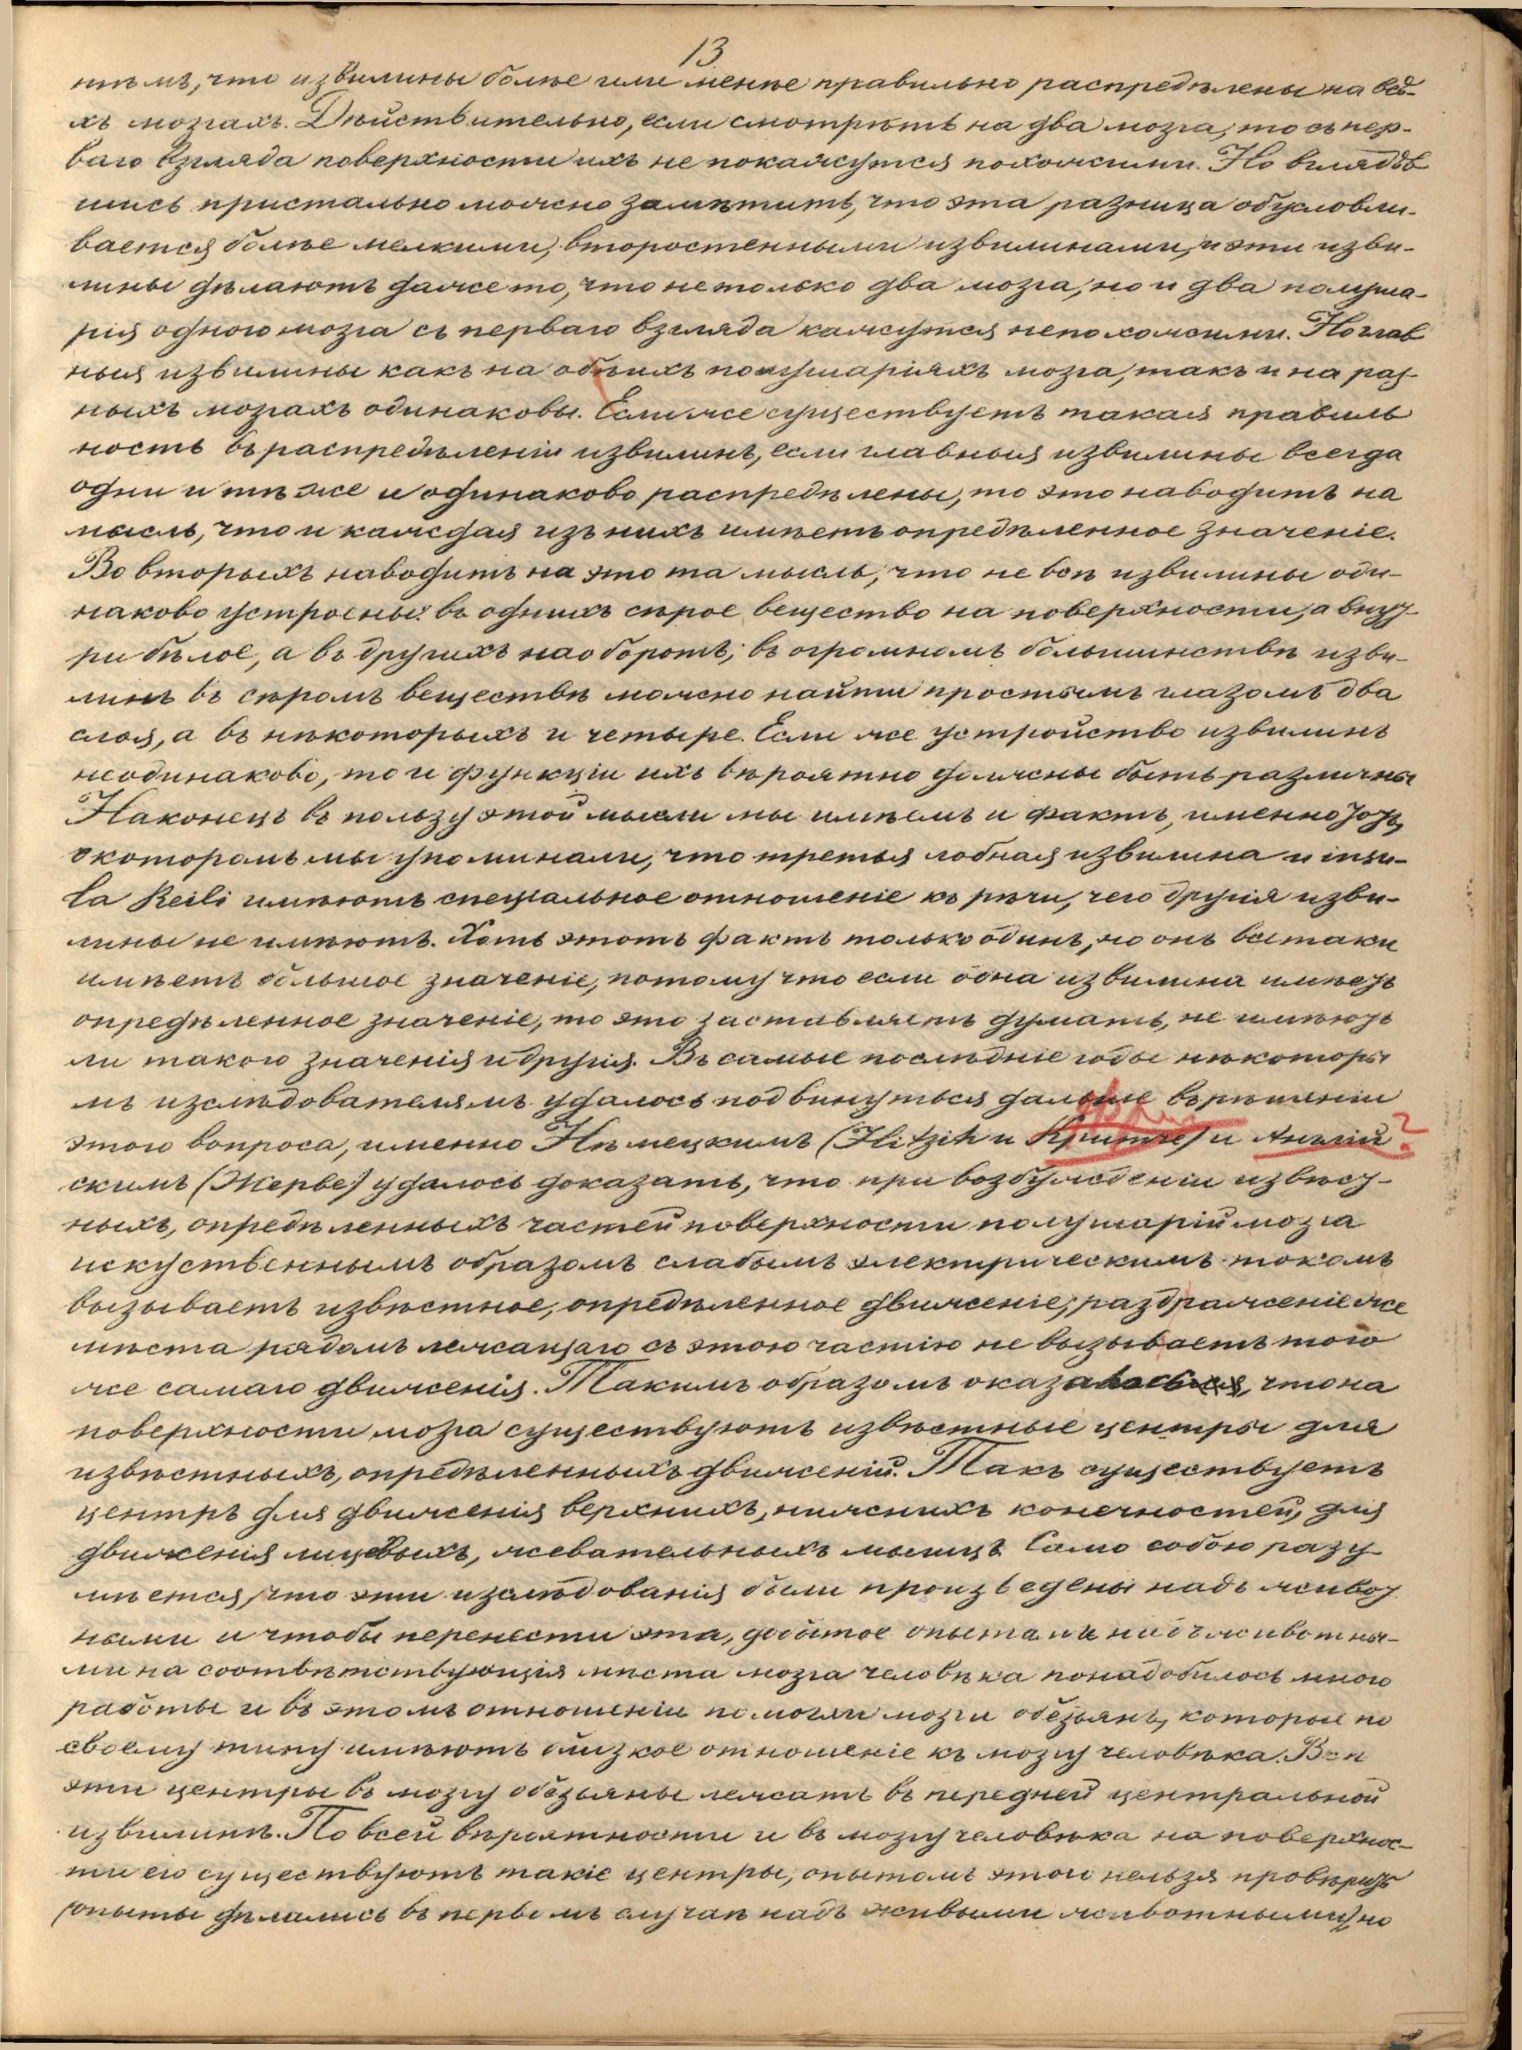 13
тѣмъ, что извилины болѣе или менѣе правильно распредѣлены на всѣ-
хъ мозгахъ. Дѣйствительно, если смотрѣть на два мозга, то съ пер-
ваго взгляда поверхности ихъ не покажутся похожими. Но вглядѣв
шись пристально можно замѣтить, что эта разница обусловли-
вается болѣе мелкими, второстенными извилинами, и эти изви-
лины дѣлаютъ даже то, что не только два мозга, но и два полуша-
рія одного мозга съ перваго взгляда кажутся непохожими. Но глав
ныя извилины какъ на обѣихъ полушаріяхъ мозга, такъ и на раз-
ныхъ мозгахъ одинаковы. Если же существуетъ такая правиль
ность въ распредѣленіи извилинъ, если главныя извилины всегда
одни и тѣ же и одинаково распредѣлены, то это наводитъ на
мысль, что и каждая изъ нихъ имѣетъ опредѣленное значеніе.
Во вторыхъ наводитъ на это та мысль, что не всѣ извилины оди-
наково устроены: въ однихъ сѣрое вещество на поверхности, а внут-
ри бѣлое, а въ другихъ наоборотъ; въ огромномъ большинствѣ изви-
линъ въ сѣромъ веществѣ можно найти простымъ глазомъ два
слоя, а въ нѣкоторыхъ и четыре. Если же устройство извилинъ
неодинаково, то и функціи ихъ вѣроятно должны быть различны
Наконецъ въ пользу этой мысли мы имѣемъ и фактъ, именно тотъ,
о которомъ мы упоминали, что третья лобная извилина и insu-
la Reili имѣютъ спеціальное отношеніе къ рѣчи, чего другія изви-
лины не имѣютъ. Хоть этотъ фактъ только одинъ, но онъ всетаки
имѣетъ большое значеніе, потому что если одна извилина имѣетъ
опредѣленное значеніе, то это заставляетъ думать, не имѣютъ
ли такого значенія и другія. Въ самые послѣдніе годы нѣкоторы
мъ изслѣдователямъ удалось подвинуться дальше въ рѣшеніи
этого вопроса, именно Нѣмецкимъ (Hitzih и Критче) и Англій ?
скимъ (Жерве) удалось доказать, что при возбужденіи извѣст-
ныхъ, опредѣленныхъ частей поверхности полушарій мозга
искуственнымъ образомъ слабымъ электрическимъ токомъ
вызываетъ извѣстное, опредѣленное движеніе; раздраженіе же
мѣста рядомъ лежащаго съ этою частію не вызываетъ того
же самаго движенія. Такимъ образомъ оказалось, что на
поверхности мозга существуютъ извѣстные центры для
извѣстныхъ, опредѣленныхъ движеній. Такъ существуетъ
центръ для движенія верхнихъ, нижнихъ конечностей, для
движенія лицевыхъ, жевательныхъ мышцъ. Само собою разу-
мѣется, что эти изслѣдованія были произведены надъ живот
ными и чтобы перенести эта, добытое опытами надъ животны-
ми на соотвѣтствующія мѣста мозга человѣка понадобилось много
работы и въ этомъ отношеніи помогли мозги обезьянъ, которые по
своему типу имѣютъ близкое отношеніе къ мозгу человѣка. Всѣ
эти центры въ мозгу обезьяны лежатъ въ передней центральной
извилинѣ. По всей вѣроятности и въ мозгу человѣка на поверхнос-
ти его существуютъ такіе центры, опытомъ этого нельзя провѣрить
(опыты дѣлались въ первомъ случаѣ надъ живыми животными), но